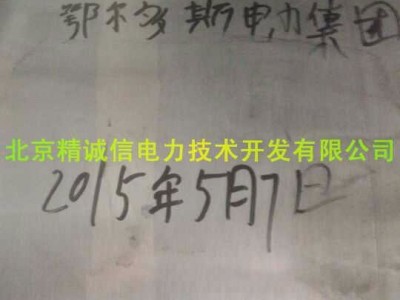 鄂尔多斯电力集团
北京精诚信电力技术开发有限公司
2015年5月7日